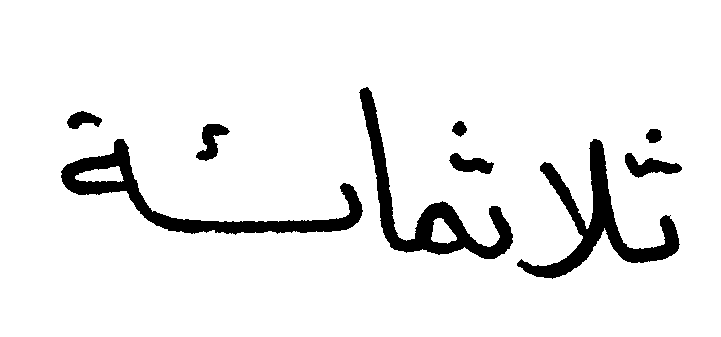 ثلاثمائة